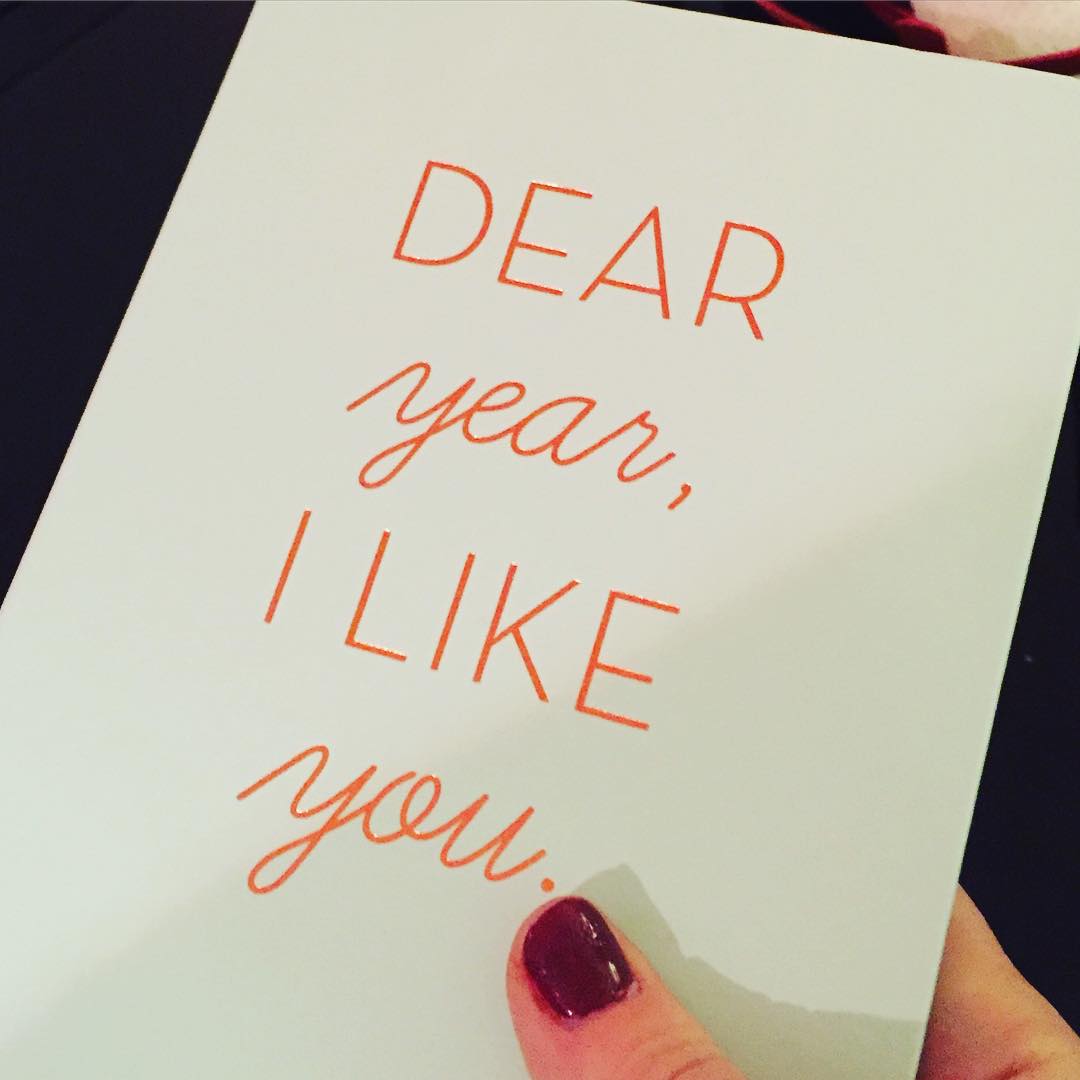 DEAR
year,
I LIKE
you.